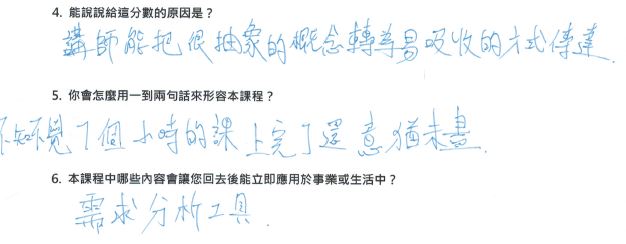 4. 能說說給這分數的原因是？
講師能把很抽象的概念轉為易吸收的方式傳達.
5. 你會怎麼用一到兩句話來形容本課程？
不知不覺7個小時的課上完了還意猶未盡.
6. 本課程中哪些內容會讓您回去後能立即應用於事業或生活中？
需求分析工具.